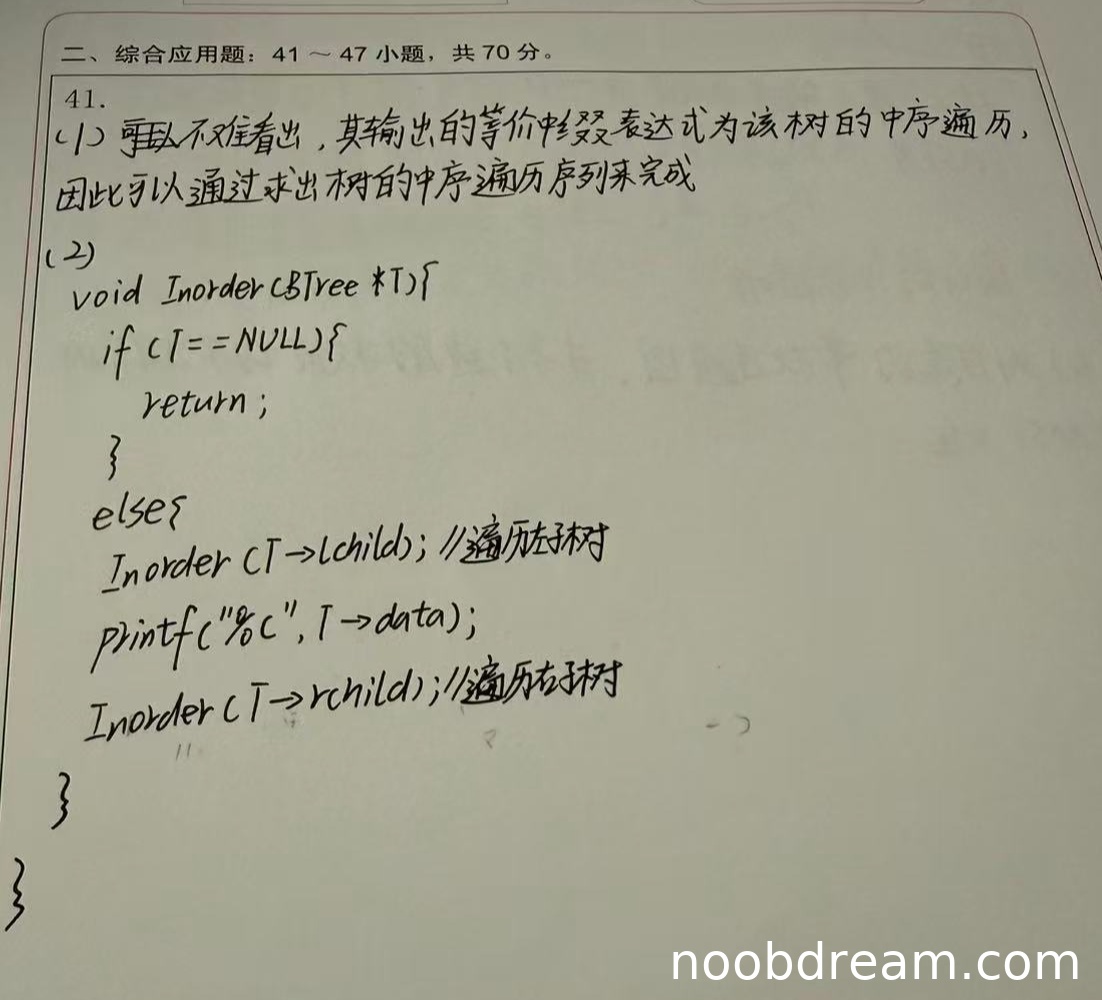 二、综合应用题：41～47 小题，共 70 分。
41.
(1) 不难看出，其输出的等价中缀表达式为该树的中序遍历，
因此可以通过求出树的中序遍历序列来完成
(2)
void Inorder(BTree *T){
if (T==NULL){
return;
}
else{
Inorder(T→lchild); //遍历左子树
printf("%c", T→data);
Inorder(T→rchild); //遍历右子树
}
}
noobdream.com